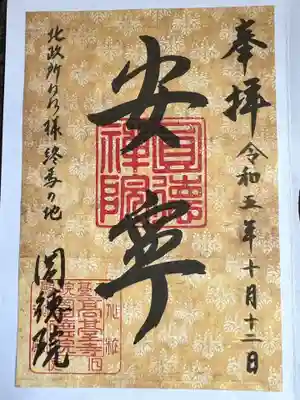 奉拝 令和五年十月十二日
安寧
圓德
禪院
北政所ねね様 終焉の地
圓徳院